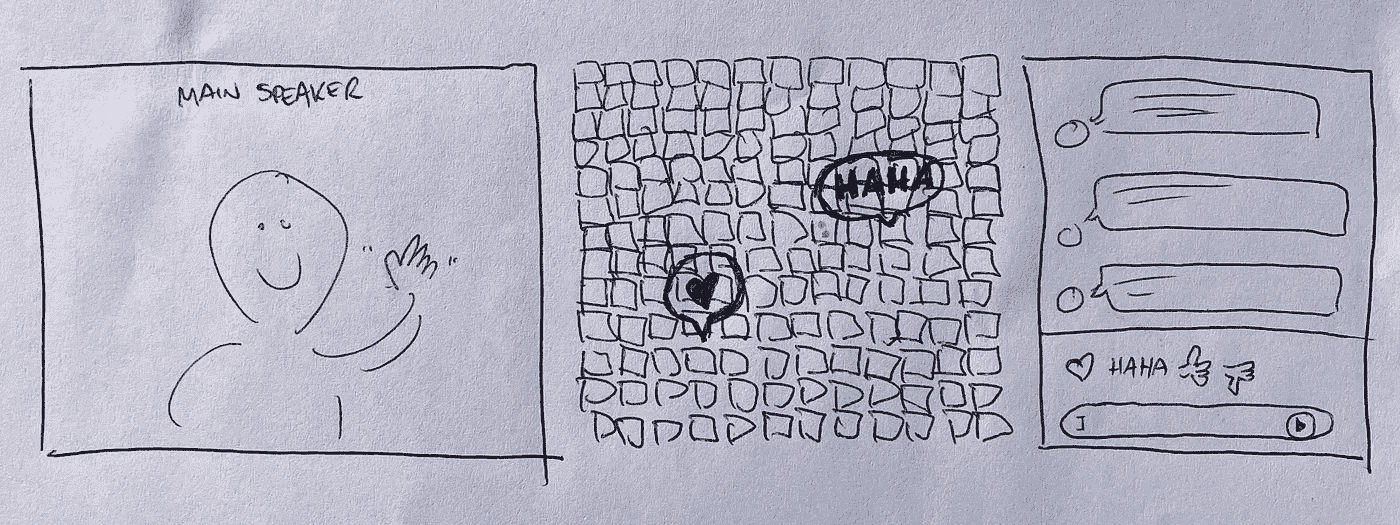 MAIN SPEAKER
HAHA
HAHA